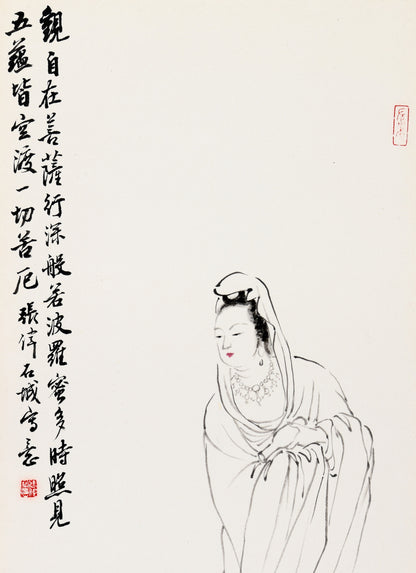 觀自在菩薩行深般若波羅蜜多時照見
五蘊皆空渡一切苦厄張偉石城寫意